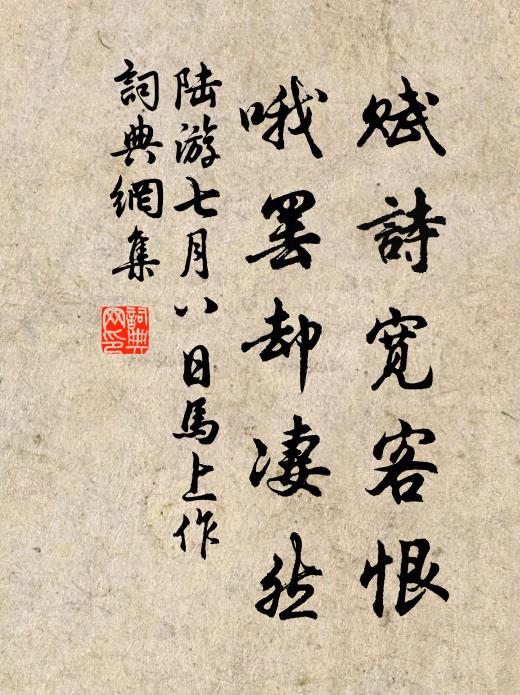 賦詩寬客恨
哦罷却淒然
陆游七月八日馬上作
詞典網集
詞典網印